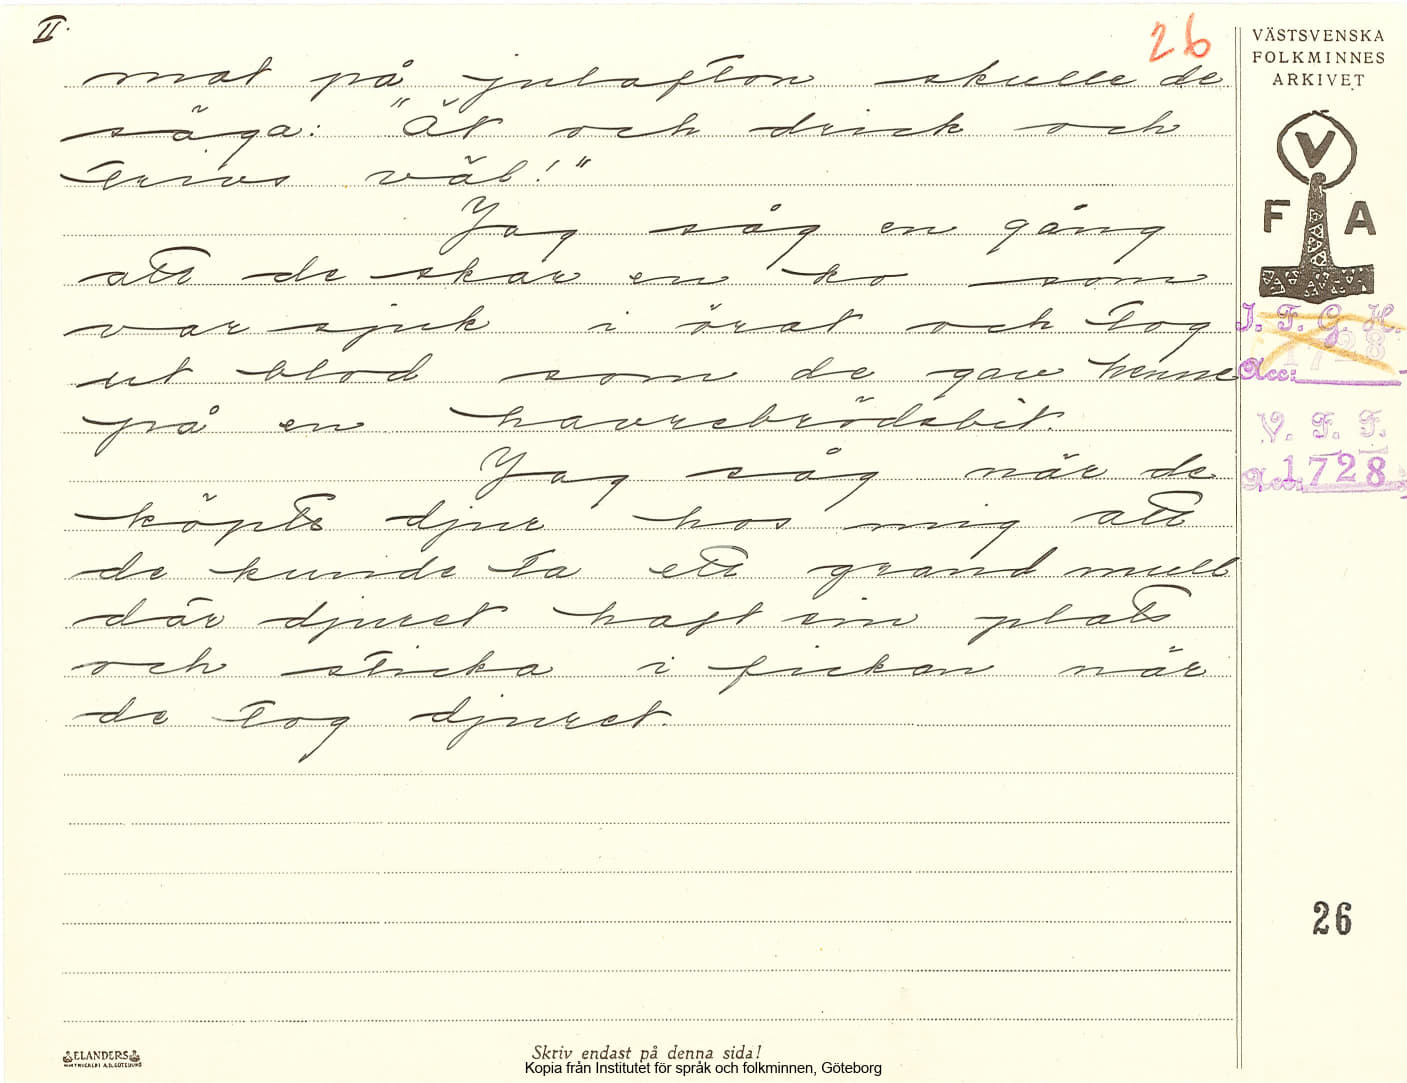 II.
26
mat på julafton skulle de
säga: "Ät och drick och
trivs väl!"
Jag såg en gång
att de skar en ko som
var sjuk i örat och tog
ut blod som de gav henne
på en havrebrödsbit.
Jag såg när de
köpte djur hos mig att
de kunde ta ett grand mull
där djuret haft sin plats
och sticka i fickan när
de tog djuret.
VÄSTSVENSKA
FOLKMINNES
ARKIVET
V
F A
I. F. G. H.
1728
Acc:
V. F. F.
Acc: 1728
26
ELANDERS
Skriv endast på denna sida!
Kopia från Institutet för språk och folkminnen, Göteborg